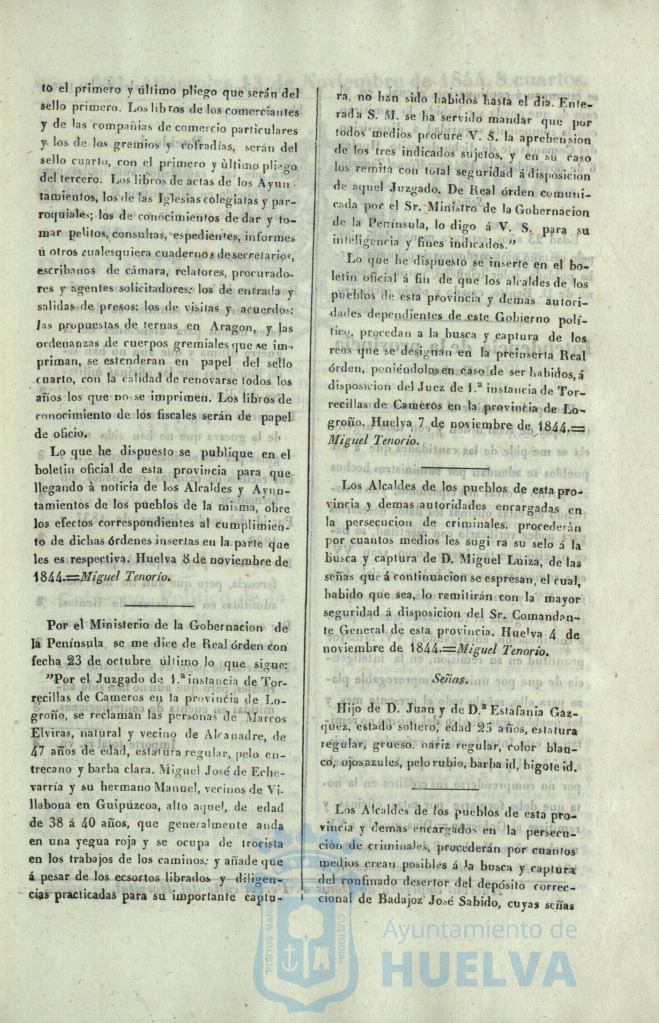 to el primero y último pliego que serán del
sello primero. Los libros de los comerciantes
y de las compañias de comercio particulares
y los de los gremios y cofradías, serán del
sello cuarto, con el primero y ùltimo pliego
del tercero. Los libros de actas de los Ayun
tamientos, los de las Iglesias colegiatas y par-
roquiales; los de conocimientos de dar y to-
mar pelitos, consultas, espedientes, informes
ú otros cualesquiera cuadernos de secretarios,
escribanos de cámara, relatores, procurado-
res y agentes solicitadores: los de entrada y
salidas de presos: los de visitas y acuerdos:
las propuestas de ternas en Aragon, y las
ordenanzas de cuerpos gremiales que se im-
priman, se estenderan en papel del sello
cuarto, con la calidad de renovarse todos los
años los que no se imprimen. Los libros de
conocimiento de los fiscales serán de papel
de oficio.
Lo que he dispuesto se publique en el
boletin oficial de esta provincia para que
llegando á noticia de los Alcaldes y Ayun-
tamientos de los pueblos de la misma, obre
los efectos correspondientes al cumplimien-
to de dichas órdenes insertas en la parte que
les es respectiva. Huelva 8 de noviembre de
1844.=Miguel Tenorio.
Por el Ministerio de la Gobernacion de
la Península se me dice de Real órden con
fecha 23 de octubre último lo que sigue:
"Por el Juzgado de 1.ª instancia de Tor-
recillas de Cameros en la provincia de Lo-
groño, se reclaman las personas de Marcos
Elviras, natural y vecino de Alcanadre, de
47 años de edad, estatura regular, pelo en-
trecano y barba clara. Miguel José de Eche-
varría y su hermano Manuel, vecinos de Vi-
llabona en Guipúzcoa, alto aquel, de edad
de 38 á 40 años, que generalmente anda
en una yegua roja y se ocupa de trocista
en los trabajos de los caminos: y añade que
á pesar de los ecsortos librados y diligen-
cias practicadas para su importante captu-
ra, no han sido habidos hasta el dia. Ente-
rada S. M. se ha servido mandar que por
todos medios procure V. S. la aprehension
de los tres indicados sujetos, y en su caso
los remita con total seguridad á disposicion
de aquel Juzgado. De Real órden comuni-
cada por el Sr. Ministro de la Gobernacion
de la Península, lo digo á V. S. para su
inteligencia y fines indicados."
Lo que he dispuesto se inserte en el bo-
letin oficial á fin de que los alcaldes de los
pueblos de esta provincia y demas autori-
dades dependientes de este Gobierno polí-
tico, procedan a la busca y captura de los
reos que se designan en la preinserta Real
órden, poniéndolos en caso de ser habidos, á
disposicion del Juez de 1.ª instancia de Tor-
recillas de Cameros en la provincia de Lo-
groño. Huelva 7 de noviembre de 1844.=
Miguel Tenorio.
Los Alcaldes de los pueblos de esta pro-
vincia y demas autoridades encargadas en
la persecucion de criminales, procederán
por cuantos medios les sugi ra su selo á la
busca y captura de D. Miguel Luiza, de las
señas que á continuacion se espresan, el cual,
habido que sea, lo remitirán con la mayor
seguridad á disposicion del Sr. Comandan-
te General de esta provincia. Huelva 4 de
noviembre de 1844.=Miguel Tenorio.
Señas.
Hijo de D. Juan y de D.ª Estafania Gaz-
quez, estado soltero, edad 25 años, estatura
regular, grueso, nariz regular, color blan-
co, ojos azules, pelo rubio, barba id, bigote id.
Los Alcaldes de los pueblos de esta pro-
vincia y demas encargados en la persecu-
cion de criminales, procederán por cuantos
medios crean posibles á la busca y captura
del confinado desertor del depósito correc-
cional de Badajoz José Sabido, cuyas señas
PORTUS MARIS
CUSTODIA
Ayuntamiento de
HUELVA